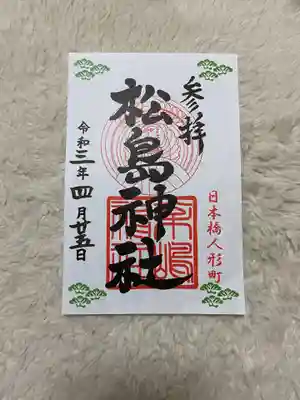 参拝
松島神社
日本橋人形町
令和三年四月廿五日